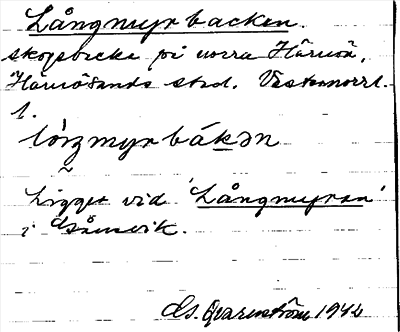 Långmyrbacken.
skogsbacke på norra Härnön,
Härnösands stad. Västernorrl.
l.
lòŋmyrbákən
Ligger vid 'Långmyran'
i
Gs. Qvarnström 1942